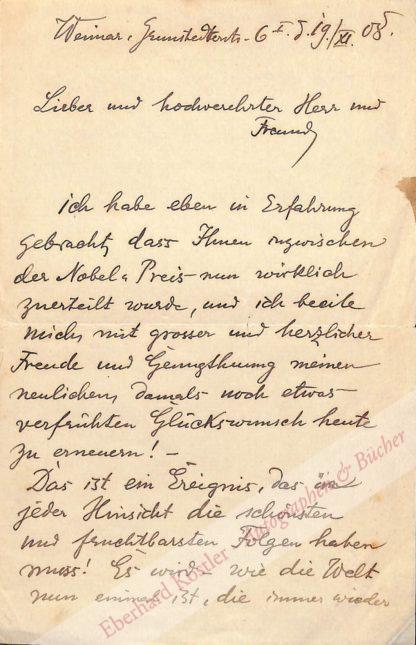 Weimar, Grunstedterstr. 6 I. d. 19/XI. 08.
Lieber und hochverehrter Herr und
Freund,
ich habe eben in Erfahrung
gebracht, dass Ihnen inzwischen
der Nobel-Preis nun wirklich
zuerteilt wurde, und ich beeile
mich, mit grosser und herzlicher
Freude und Genugthuung meinen
neulichen, damals noch etwas
verfrühten Glückswunsch heute
zu erneuern! –
Das ist ein Ereignis, das in
jeder Hinsicht die schönsten
und fruchtbarsten Folgen haben
muss! Es wird, wie die Welt
nun einmal ist, die immer wieder
Eberhard Köstler Autographen & Bücher